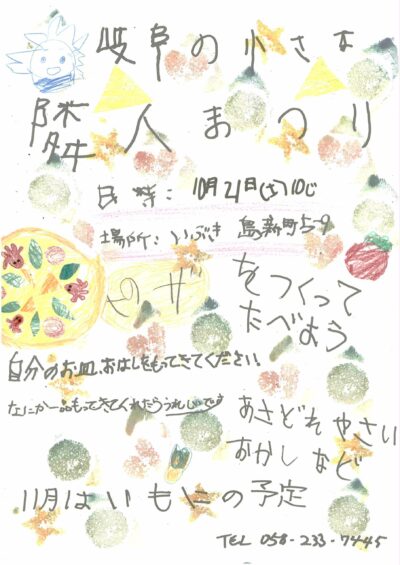 岐阜の小さな
隣人まつり
日時: 10月21日(土)10じ
場所: いぶき 島新町5-9
ピザ
をつくって
たべよう
自分のお皿、おはしをもってきてください。
なにか一品もってきてくれたらうれしいです
あさどれやさい
おかしなど
11月はいもにの予定
TEL 058-233-7445